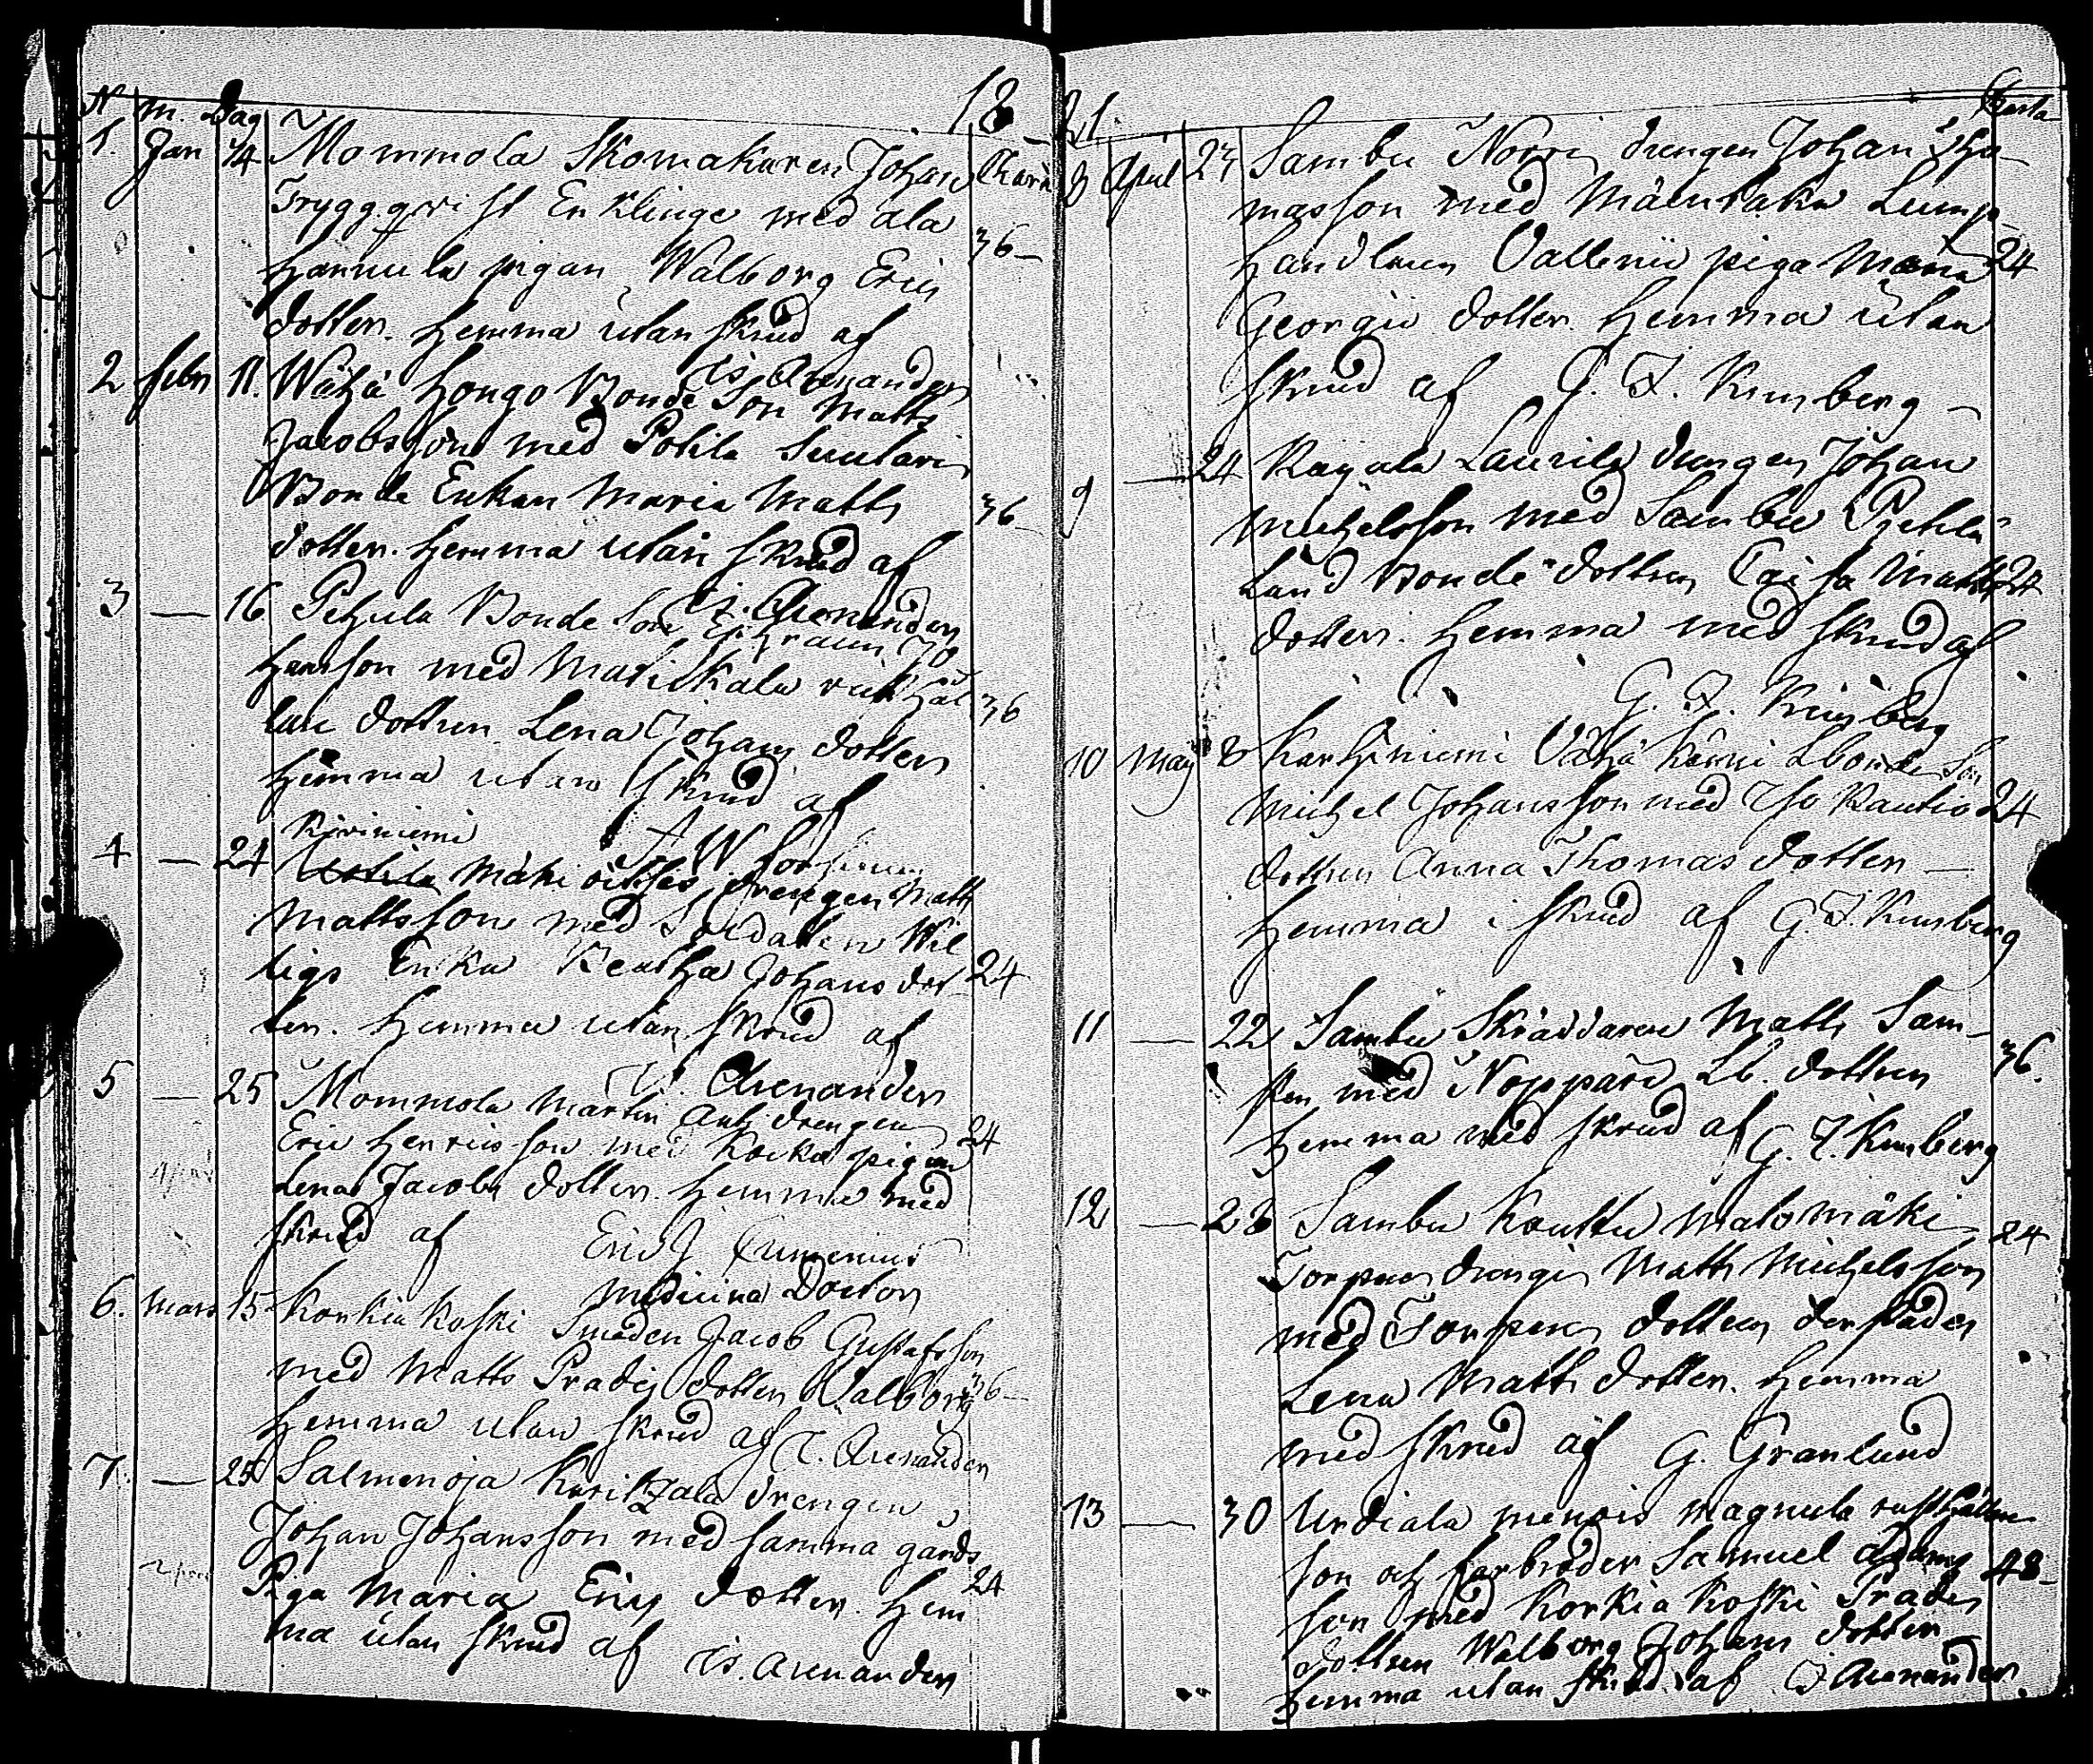 N m. Dag 18
1. Jan 14 Mommola Skomakaren Johan Charta
Tryggqvist Enklinge med ala
Hannula pigan Walborg Erics 36
dotter. Hemma utan skrud af
Is. Arenander
2 Febr 11. Wähä Hongo Bonde Son Matts
Jacobsson med Potila Suutari
Bonde Enkan Maria Matts 36
dotter. Hemma utan skrud af
Is. Arenander
3 — 16 Pehula Bonde Son Ephraim Jo
hansson med Matiskala rusthål 36
lare dottren Lena Johans dotter
Hemma utan skrud af
Kiviniemi
4 — 24 Mäki drengen Matts
Mattsson med Soldaten Wil
ligs Enka Beatha Johans dot 24
ter. Hemma utan skrud af
Is. Arenander
5 — 25 Mommola Martin drengen
Eric Henricsson med pigan 24
Lena Jacobs dotter. Hemma med
skrud af Eric J
Medicina Doctor
6. Mars 15 Korkia Koski Smeden Jacob Gustafsson
med Matts Pradis dotter Valborg 36
Hemma utan skrud af Is. Arenander
7. — 25 Salmenoja drengen
Johan Johansson med samma gårds
Piga Maria Erics dotter. Hem 24
ma utan skrud af Is. Arenander
21. Charta
8 April 23 Sambu Norri drengen Johan Tho-
masson med Lump
handlaren Vallenii piga Maria 24
Georgii dotter. Hemma utan
skrud af G. F. Kumberg
9 — 24 Kayala Laurila drengen Johan
Michelsson med Sambu
Land Bonde dottren Caisa Matts 24
dotter. Hemma med skrud af
G. F. Kumberg
10 May 8 Karhiniemi Vähä Lbonde Son
Michel Johansson med Iso Rautio 24
dottren Anna Thomas dotter —
Hemma i skrud af G. F. Kumberg
11 — 22 Sambu Skräddaren Matts Sam-
sten med Noppari Lb. dottren 36.
Hemma med skrud af G. F. Kumberg
12 — 28 Sambu Kouttu Malomäki 24
Torpare drengen Matts Michelsson
med Torpare dottren derstädes
Lena Matts dotter. Hemma
med skrud af G. Granlund
13 — 30 Urdiala menois Magnula rusthållare
son och farbroder Samuel Adams 48
son med Korkia Koski Prades
dottren Walborg Johans dotter
Hemma utan skrud af Is Arenander.